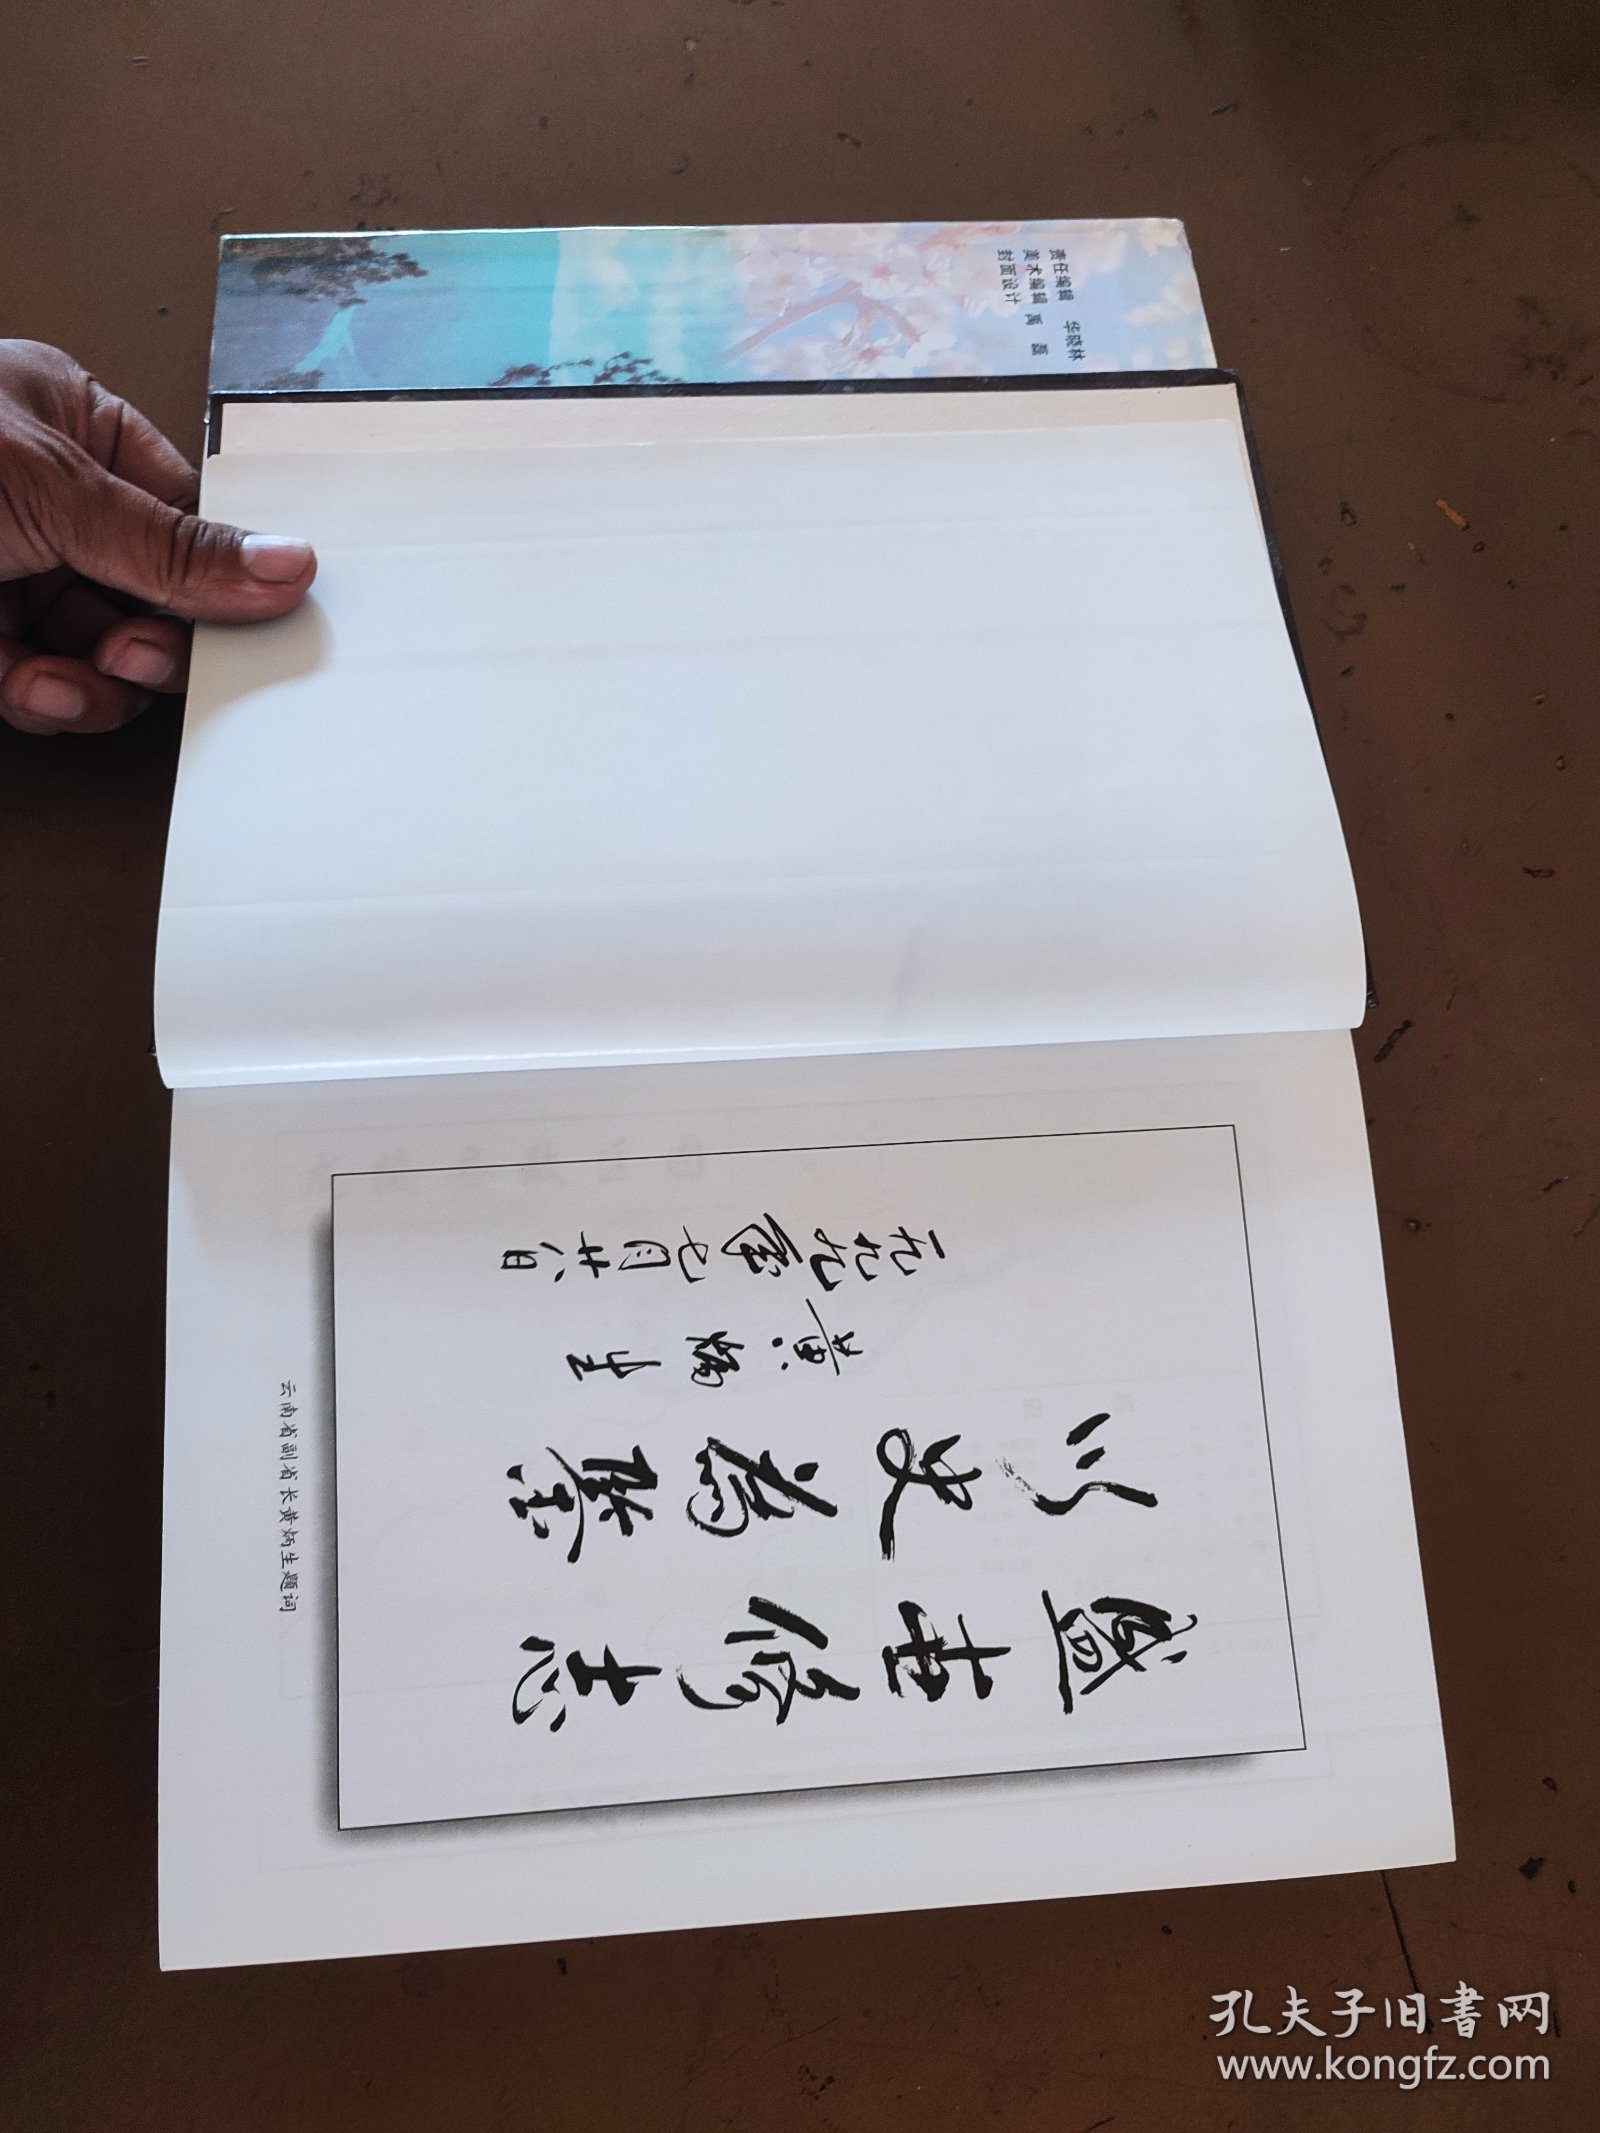 责任编辑 华晓林
美术编辑 禹 磊
封面设计
盛世修志
以史为鉴
黄炳生
一九九九年七月廿八日
云南省副省长黄炳生题词
孔夫子旧书网
www.kongfz.com